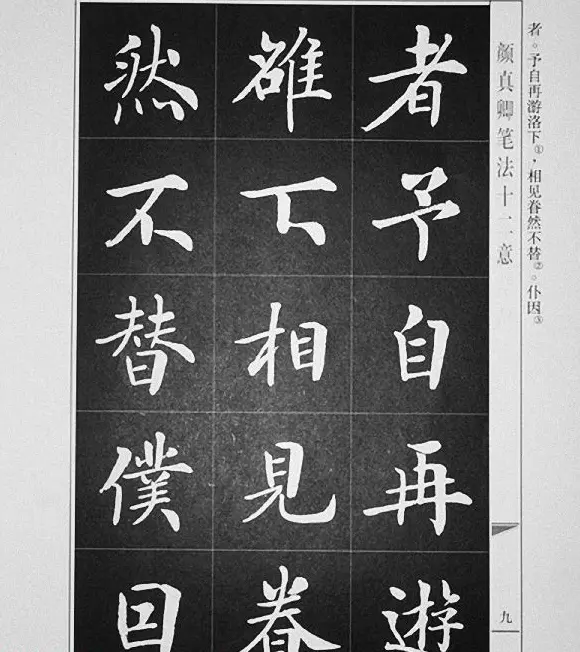 者。予自再游洛下①，相见眷然不替②。仆因③
颜真卿笔法十二意
九
者予自再遊
雒下相見眷
然不替僕囙